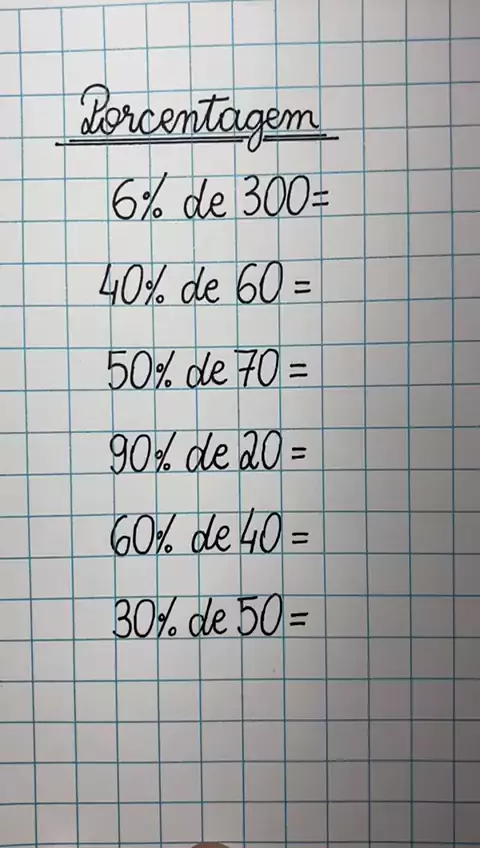 Porcentagem
6% de 300=
40% de 60 =
50% de 70 =
90% de 20 =
60% de 40 =
30% de 50 =